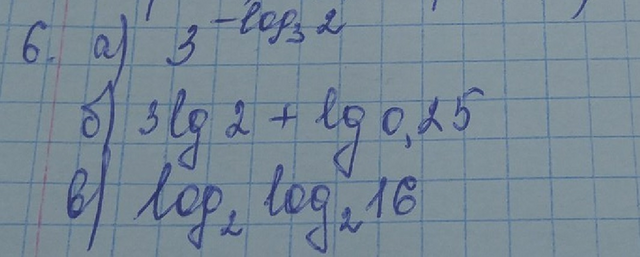 6. а) 3^{-log₃ 2}
б) 3 lg 2 + lg 0,25
в) log₂ log₂ 16